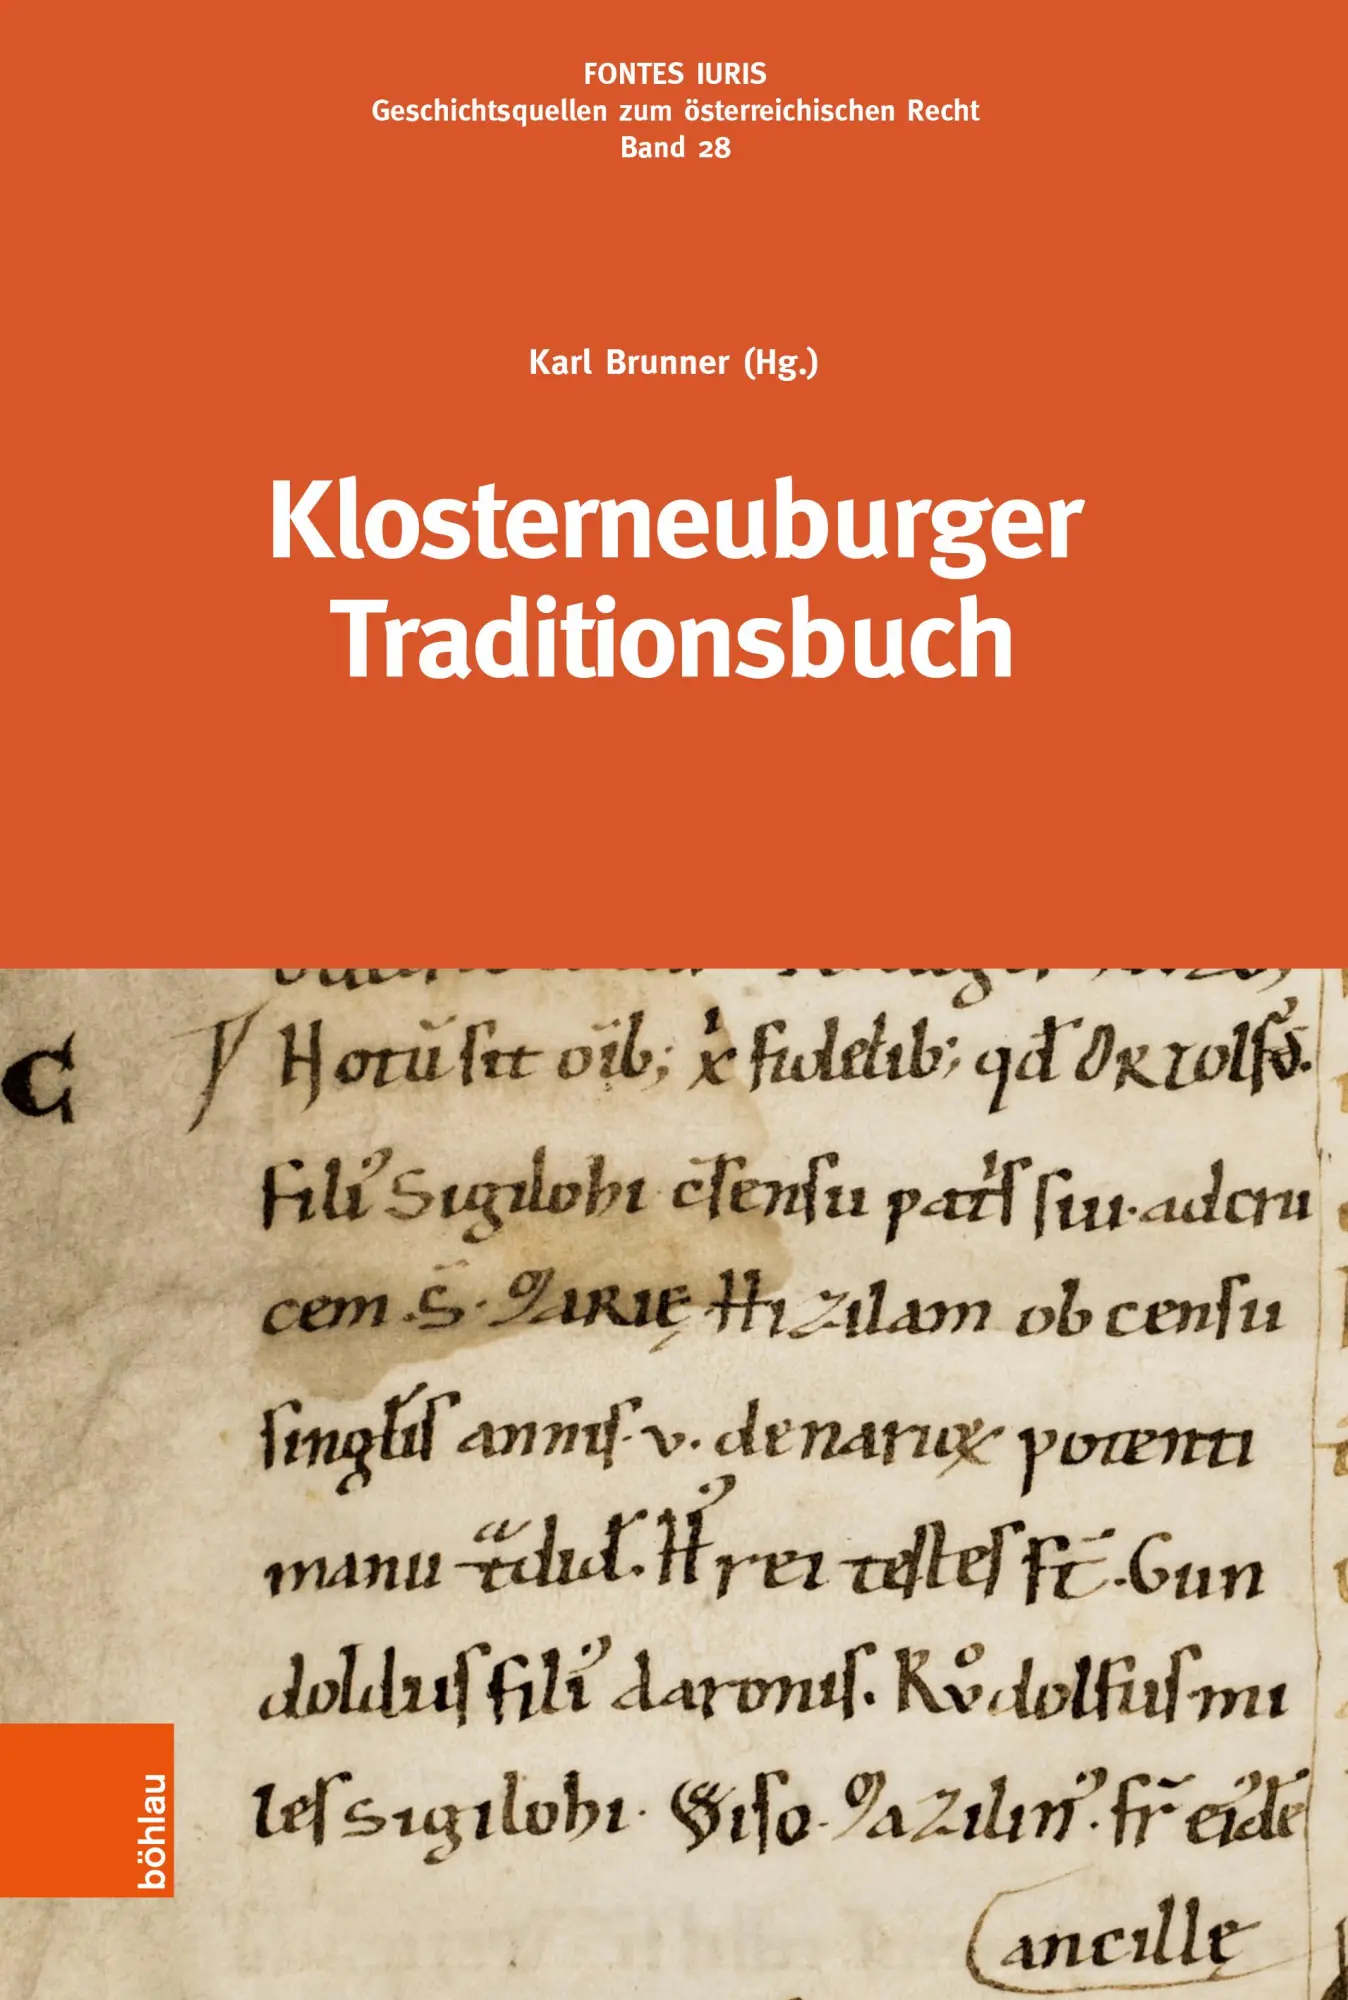 FONTES IURIS
Geschichtsquellen zum österreichischen Recht
Band 28
Karl Brunner (Hg.)
Klosterneuburger
Traditionsbuch
C
Notū sit oīb; xͥ fidelib; qd Ortolfꝰ.
filiꝰ Sigilohi c̄sensu patͥs sui· ad cru
cem ·S̄· MARIĘ Hizilam ob censū
singłis annis· v· denarioꝝ potenti
manu tͣdid̄. Hꝰ rei testes st̄. Gun
doldus filiꝰ daronis. Růdolfus mi
les sigilohi· Giso· Mazilinꝰ· fr̄ eiꝰdē
ancillę
böhlau